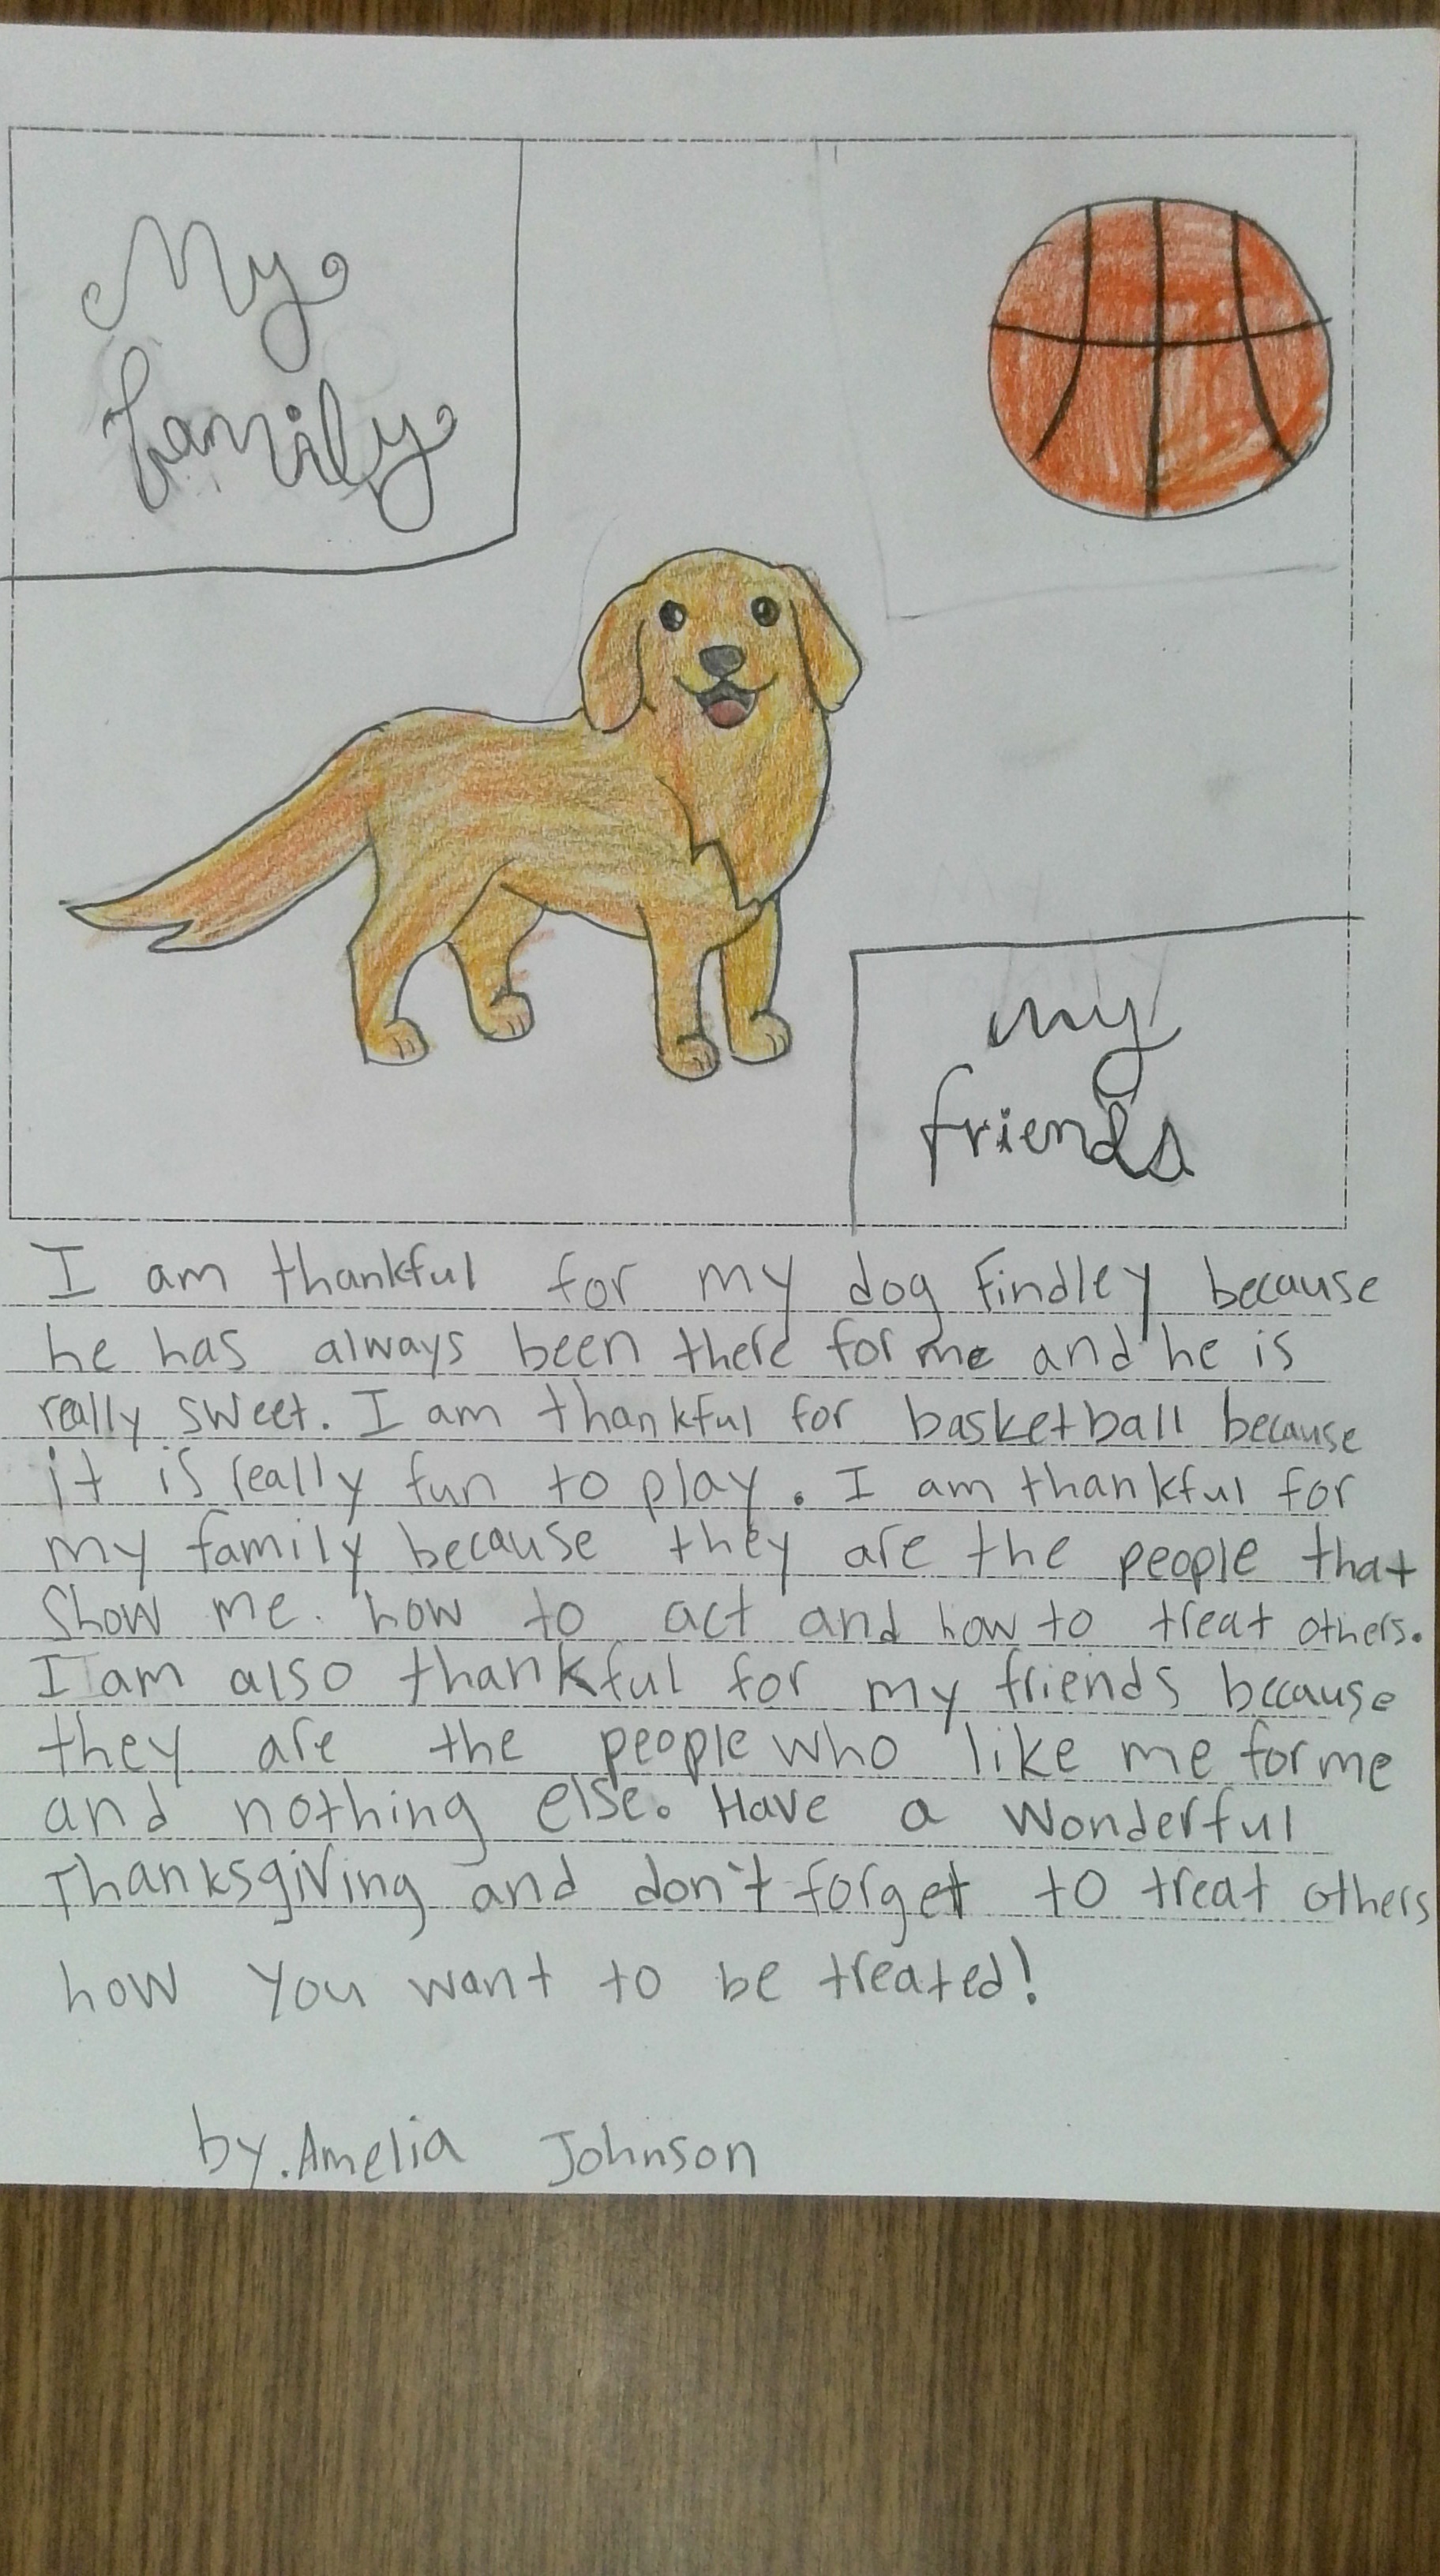 My
family
my
friends
I am thankful for my dog Findley because
he has always been there for me and he is
really sweet. I am thankful for basketball because
it is really fun to play. I am thankful for
my family because they are the people that
Show me how to act and how to treat others.
I am also thankful for my friends because
they are the people who like me for me
and nothing else. Have a Wonderful
Thanksgiving and don't forget to treat others
how you want to be treated!
by. Amelia Johnson